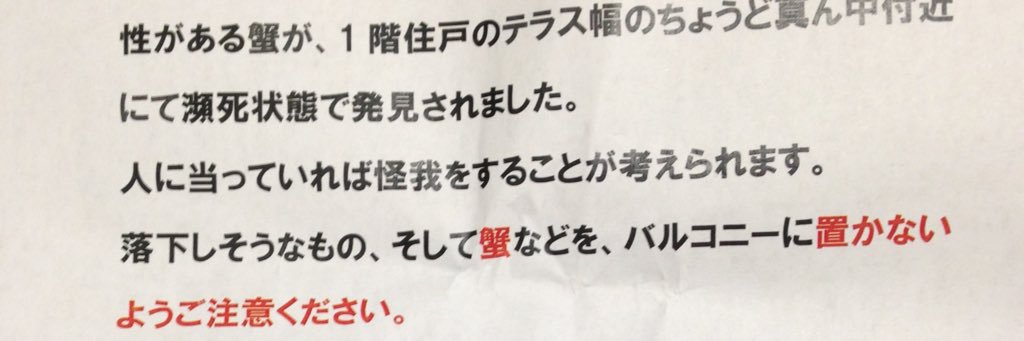 性がある蟹が、1階住戸のテラス幅のちょうど真ん中付近
にて瀕死状態で発見されました。
人に当っていれば怪我をすることが考えられます。
落下しそうなもの、そして蟹などを、バルコニーに置かない
ようご注意ください。